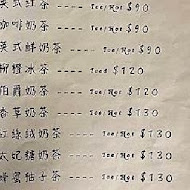 英式紅茶 ---- Ice/Hot $90
咖啡奶茶 ---- Ice/Hot $90
英式鮮奶茶 --- Ice/Hot $90
檸檬冰茶 ---- Iced $120
伯爵奶茶 ---- Ice/Hot $120
香草奶茶 ---- Ice/Hot $130
紅絲絨奶茶 ---- Ice/Hot $130
太妃糖奶茶 ---- Ice/Hot $130
蜂蜜柚子茶 --- Ice/Hot $130